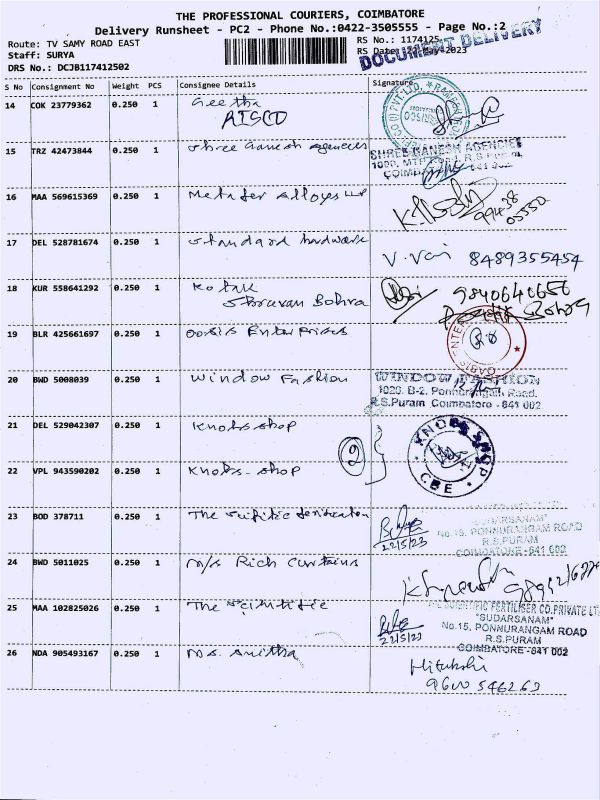 THE PROFESSIONAL COURIERS, COIMBATORE
Delivery Runsheet - PC2 - Phone No.:0422-3505555 - Page No.:2
Route: TV SAMY ROAD EAST
RS No.: 1174125
Staff: SURYA
RS Date: 22-May-2023
DOCUMENT DELIVERY
DRS No.: DCJB117412502
S No Consignment No Weight PCS Consignee Details Signature
14 COK 23779362 0.250 1 Geetha
RISCO
15 TRZ 42473844 0.250 1 Shree Ganesh Agencies
SHREE GANESH AGENCIES
COIMBATORE - 641 002
16 MAA 569615369 0.250 1 Metafer Alloyes LLP
99438
05550
17 DEL 528781674 0.250 1 Standard hardware
8489355454
18 KUR 558641292 0.250 1 Kotak
Shravan Bohra
9840640656
19 BLR 425661697 0.250 1 Oasis Enter Prises
OASIS ENTER
20 BWD 5008039 0.250 1 Window Fashion
WINDOW FASHION
1020, B-2, Ponnurangam Road,
R.S.Puram Coimbatore - 641 002
21 DEL 529042307 0.250 1 Knobs shop
KNOBS SHOP
CBE
2
22 VPL 943590202 0.250 1 Knobs - shop
23 BOD 378711 0.250 1 The
22/5/23
"SUDARSANAM"
No.15, PONNURANGAM ROAD
R.S.PURAM
COIMBATORE-641 002
24 BWD 5011025 0.250 1 M/s Rich Curtains
25 MAA 102825026 0.250 1 The Scientific
22/5/23
THE SCIENTIFIC FERTILISER CO.PRIVATE LTD
"SUDARSANAM"
No.15, PONNURANGAM ROAD
R.S.PURAM
COIMBATORE-641 002
26 NDA 905493167 0.250 1 Ms. Anitha
9600 546262